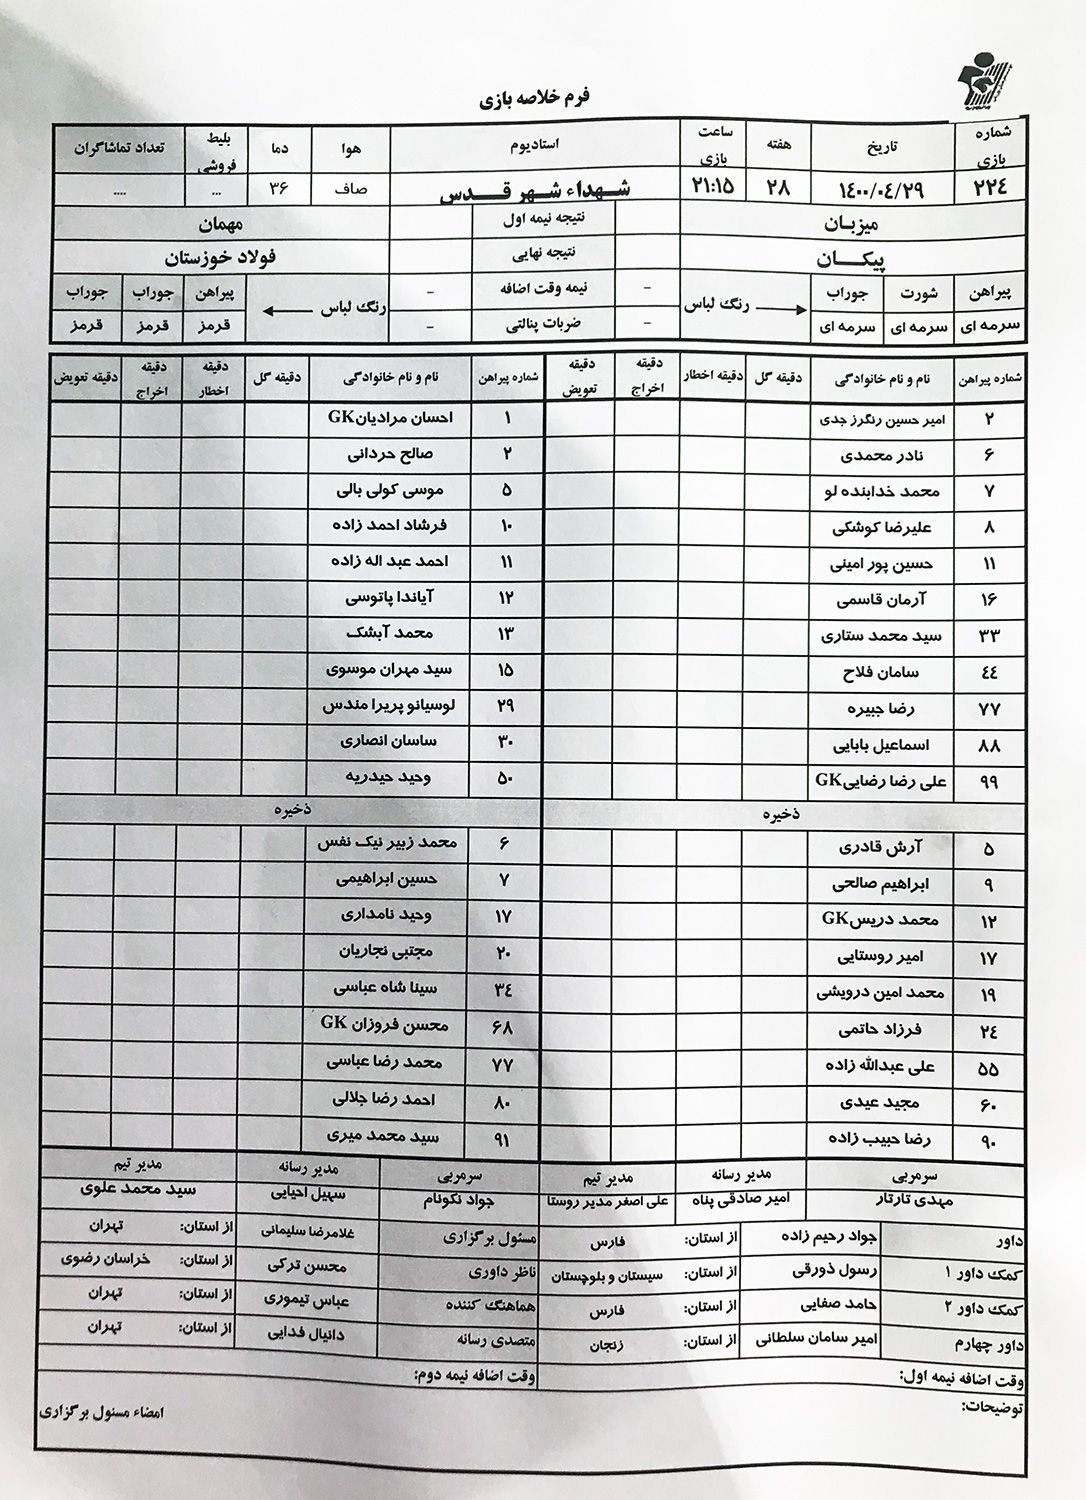 فرم خلاصه بازی
شماره بازی تاریخ هفته ساعت بازی استادیوم هوا دما بلیط فروشی تعداد تماشاگران
۲۲۴ ۱۴۰۰/۰۴/۲۹ ۲۸ ۲۱:۱۵ شهداء شهر قدس صاف ۳۶ ... ....
میزبان نتیجه نیمه اول مهمان
پیکان نتیجه نهایی فولاد خوزستان
پیراهن شورت جوراب رنگ لباس - نیمه وقت اضافه - رنگ لباس پیراهن جوراب جوراب
سرمه ای سرمه ای سرمه ای - ضربات پنالتی - قرمز قرمز قرمز
شماره پیراهن نام و نام خانوادگی دقیقه گل دقیقه اخطار دقیقه اخراج دقیقه تعویض شماره پیراهن نام و نام خانوادگی دقیقه گل دقیقه اخطار دقیقه اخراج دقیقه تعویض
۲ امیر حسین رنگرز جدی ۱ احسان مرادیان GK
۶ نادر محمدی ۲ صالح حردانی
۷ محمد خدابنده لو ۵ موسی کولی بالی
۸ علیرضا کوشکی ۱۰ فرشاد احمد زاده
۱۱ حسین پور امینی ۱۱ احمد عبد اله زاده
۱۶ آرمان قاسمی ۱۲ آیاندا پاتوسی
۳۳ سید محمد ستاری ۱۳ محمد آبشک
۴۴ سامان فلاح ۱۵ سید مهران موسوی
۷۷ رضا جبیره ۲۹ لوسیانو پریرا مندس
۸۸ اسماعیل بابایی ۳۰ ساسان انصاری
۹۹ علی رضا رضایی GK ۵۰ وحید حیدریه
ذخیره ذخیره
۵ آرش قادری ۶ محمد زبیر نیک نفس
۹ ابراهیم صالحی ۷ حسین ابراهیمی
۱۲ محمد دریس GK ۱۷ وحید نامداری
۱۷ امیر روستایی ۲۰ مجتبی نجاریان
۱۹ محمد امین درویشی ۳۴ سینا شاه عباسی
۲۴ فرزاد حاتمی ۶۸ محسن فروزان GK
۵۵ علی عبدالله زاده ۷۷ محمد رضا عباسی
۶۰ مجید عیدی ۸۰ احمد رضا جلالی
۹۰ رضا حبیب زاده ۹۱ سید محمد میری
سرمربی مدیر رسانه مدیر تیم سرمربی مدیر رسانه مدیر تیم
مهدی تارتار امیر صادقی پناه علی اصغر مدیر روستا جواد نکونام سهیل احیایی سید محمد علوی
داور جواد رحیم زاده از استان: فارس مسئول برگزاری غلامرضا سلیمانی از استان: تهران
کمک داور ۱ رسول ذورقی از استان: سیستان و بلوچستان ناظر داوری محسن ترکی از استان: خراسان رضوی
کمک داور ۲ حامد صفایی از استان: فارس هماهنگ کننده عباس تیموری از استان: تهران
داور چهارم امیر سامان سلطانی از استان: زنجان متصدی رسانه دانیال فدایی از استان: تهران
وقت اضافه نیمه اول: وقت اضافه نیمه دوم:
توضیحات: امضاء مسئول برگزاری